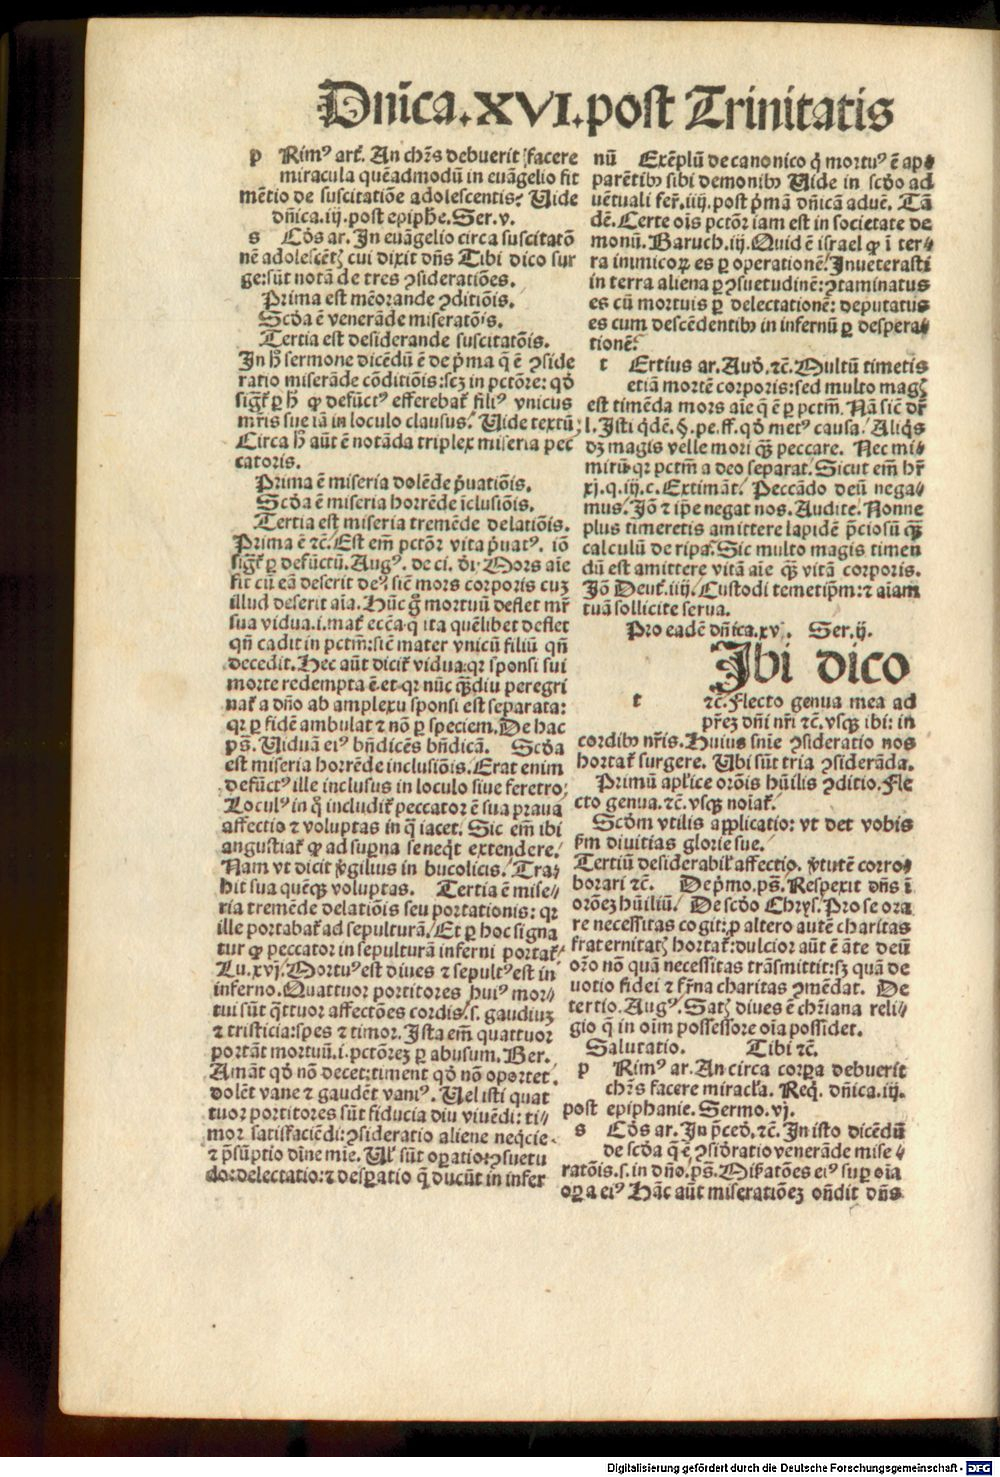 Dnĩca.XVI.post Trinitatis
p Rimꝰ art̃. An chr̃s debuerit facere
miracula quẽadmodũ in euãgelio fit
mẽtio de suscitatiõe adolescentis? Uide
dñica.iij.post epiphe.Ser.v.
s Cõs ar. In euãgelio circa suscitatõ
nẽ adolescẽtꝭ cui dixit dñs Tibi dico sur
ge:sũt notãda tres ꝯsideratiões.
Prima est mẽorande ꝯditiõis.
Scđa ẽ venerãde miseratõis.
Tertia est desiderande suscitatõis.
In hͦ sermone dicẽdũ ẽ de p̃ma q̃ ẽ ꝯside
ratio miserãde cõditiõis:scꝫ in pctõre: qđ
sigt̃ ꝑ hͦ ꝙ defũctꝰ efferebat̃ filiꝰ vnicus
mr̃is sue iã in loculo clausus. Uide textũ;
Circa hͦ aũt ẽ notãda triplex miseria pec
catoris.
Prima ẽ miseria dolẽde p̃uatiõis.
Scđa ẽ miseria horrẽde ĩclusiõis.
Tertia est miseria tremẽde delatiõis.
Prima ẽ ⁊c. Est em̃ pctõr vita p̃uatꝰ. iõ
sigt̃ ꝑ defũctũ. Augꝰ. de ci. đi. Mors aĩe
fit cũ eã deserit deꝰ, sic̃ mors corporis cuꝫ
illud deserit aĩa. Hũc g̃ mortuũ deflet mr̃
sua vidua.i.mat̃ ecc̃a q̃ ita quẽlibet deflet
qñ cadit in pctm̃:sic̃ mater vnicũ filiũ qñ
decedit. Hec aũt dicit̃ vidua:qꝛ sponsi sui
morte redempta ẽ et qꝛ nũc q̃diu peregri
nat̃ a dño ab amplexu sponsi est separata:
qꝛ ꝑ fidẽ ambulat ⁊ nõ ꝑ speciem. De hac
ps̃. Uiduã eiꝰ bñdicẽs bñdicã. Scđa
est miseria horrẽde inclusiõis. Erat enim
defũctꝰ ille inclusus in loculo siue feretro;
Loculꝰ in q̃ includit̃ peccator ẽ sua praua
affectio ⁊ voluptas in q̃ iacet. Sic em̃ ibi
angustiat̃ ꝙ ad suꝑna se neq̃t extendere.
Nam vt dicit v̓gilius in bucolicis. Tra-
hit sua quẽqꝫ voluptas. Tertia ẽ mise-
ria tremẽde delatiõis seu portationis: qꝛ
ille portabat̃ ad sepulturã. Et ꝑ hoc signa
tur ꝙ peccator in sepulturã inferni portat̃
Lu.xvj. Mortuꝰ est diues ⁊ sepultꝰ est in
inferno. Quattuor portitores huiꝰ mor-
tui sũt q̃ttuor affectões cordis.s. gaudiuꝫ
⁊ tristicia:spes ⁊ timor. Ista em̃ quattuor
portãt mortuũ.i.pctõreꝫ ꝑ abusum. Ber.
Amãt qđ nõ decet:timent qđ nõ oportet.
dolẽt vane ⁊ gaudẽt vaniꝰ. Uel isti quat
tuor portitores sũt fiducia diu viuẽdi: ti-
mor satisfaciẽdi:ꝯsideratio aliene neq̃cie.
⁊ p̃sũptio diũe mie. Ul̃ sũt oꝑatio:ꝯsuetu
do:delectatio:⁊ desꝑatio q̃ ducũt in infer
nũ Exẽplũ de canonico q̃ mortuꝰ ẽ ap-
parẽtibꝫ sibi demonibꝫ Uide in scđo ad
uẽtuali fer̃.iiij.post p̃mã dñicã aduẽ. Tã
dẽ. Certe oĩs pctõr iam est in societate de
monũ. Baruch.iij. Quid ẽ israel ꝙ ĩ ter-
ra inimicoꝝ es ꝑ operationẽ. Inueterasti
in terra aliena ꝑ ꝯsuetudinẽ: ꝯtaminatus
es cũ mortuis ꝑ delectationẽ: deputatus
es cum descẽdentibꝫ in infernũ ꝑ despera-
tionẽ.
t Ertius ar. Auđ.⁊c. Multũ timetis
etiã mortẽ corporis:sed multo magꝭ
est timẽda mors aĩe q̃ ẽ ꝑ pctm̃. Nã sic̃ dr̃
l. Isti q̃dẽ. §. pe. ff. qđ metꝰ causa. Aliq̃s
dꝫ magis velle mori q̃ꝫ peccare. Nec mi-
mirũ qꝛ pctm̃ a deo separat. Sicut em̃ hr̃
xj.q.iij.c. Extimãt. Peccãdo deũ nega-
mus. Jõ ⁊ ip̃e negat nos. Audite. Nonne
plus timeretis amittere lapidẽ p̃ciosũ q̃ꝫ
calculũ de ripa. Sic multo magis timen
dũ est amittere vitã aĩe q̃ꝫ vitã corporis.
Jõ Deut̃.iiij. Custodi temetip̃m:⁊ aĩam
tuã sollicite serua.
Pro eadẽ dñica.xvj. Ser.ij.
Ibi dico
t ⁊c. Flecto genua mea ad
pr̃eꝫ dñi nr̃i ⁊c. vsqꝫ ibi: in
cordibꝫ nr̃is. Huius snĩe ꝯsideratio nos
hortat̃ surgere. Ubi sũt tria ꝯsiderãda.
Primũ apl̃ice orõis hũilis ꝯditio. Fle
cto genua.⁊c. vsqꝫ noĩat̃.
Scđm vtilis applicatio: vt det vobis
fm̃ diuitias glorie sue.
Tertiũ desiderabil̃ affectio. v̓tutẽ corro-
borari ⁊c. De p̃mo.ps̃. Respexit dñs ĩ
orõeꝫ hũiliũ. De scđo Chrys. Pro se ora
re necessitas cogit:ꝓ altero autẽ charitas
fraternitatꝭ hortat̃:dulcior aũt ẽ ãte deũ
or̃o nõ quã necessitas trãsmittit:sꝫ quã de
uotio fidei ⁊ fr̃na charitas ꝯmẽdat. De
tertio. Augꝰ. Satꝭ diues ẽ chr̃iana reli-
gio q̃ in oĩm possessore oĩa possidet.
Salutatio. Tibi ⁊c.
p Rimꝰ ar. An circa corꝑa debuerit
chr̃s facere miracl̃a. Req̃. dñica.iij.
post epiphanie. Sermo.vj.
s Cõs ar. In p̃ceđ.⁊c. In isto dicẽdũ
de scđa q̃ ẽ ꝯsiđratio venerãde mise-
ratõis.s.in dño.ps̃. Mis̃atões eiꝰ suꝑ oĩa
oꝑa eiꝰ Hãc aũt miseratiõeꝫ oñdit dñs
Digitalisierung gefördert durch die Deutsche Forschungsgemeinschaft - DFG